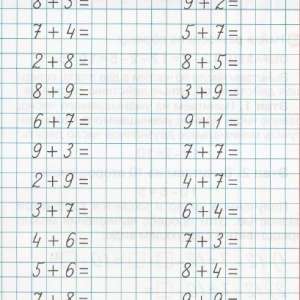 8+3= 9+2=
7+4= 5+7=
2+8= 8+5=
8+9= 3+9=
6+7= 9+1=
9+3= 7+7=
2+9= 4+7=
3+7= 6+4=
4+6= 7+3=
5+6= 8+4=
7+8= 9+9=